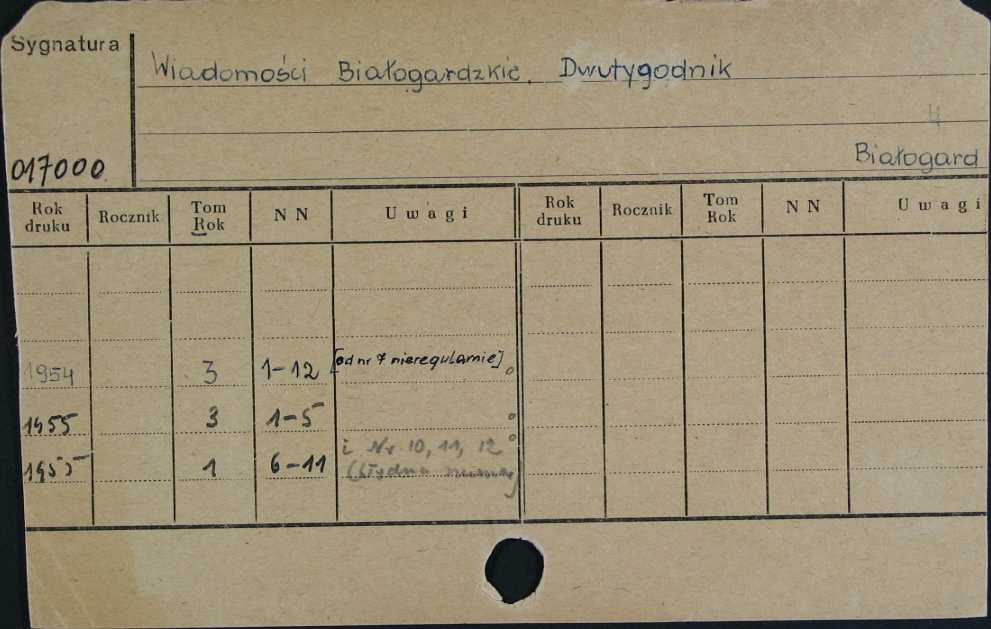 Sygnatura
Wiadomości Białogardzkie. Dwutygodnik
4
Białogard
017000
Rok druku Rocznik Tom Rok NN Uwagi Rok druku Rocznik Tom Rok NN Uwagi
1954 3 1-12 [od nr 7 nieregularnie]
1955 3 1-5
i Nr 10, 11, 12
1955 1 6-11 (błędna